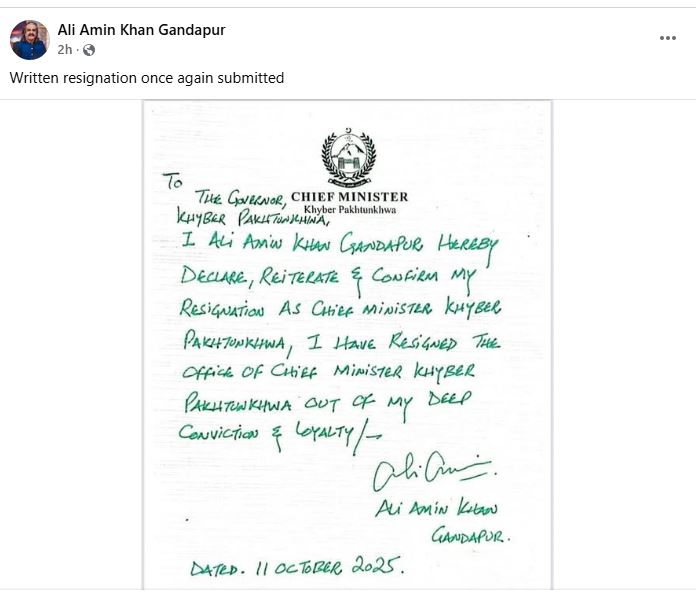 Ali Amin Khan Gandapur
2h ·
Written resignation once again submitted
CHIEF MINISTER
Khyber Pakhtunkhwa
To
THE GOVERNOR,
KHYBER PAKHTUNKHWA,
I ALI AMIN KHAN GANDAPUR HEREBY
DECLARE, REITERATE & CONFIRM MY
RESIGNATION AS CHIEF MINISTER KHYBER
PAKHTUNKHWA, I HAVE RESIGNED THE
OFFICE OF CHIEF MINISTER KHYBER
PAKHTUNKHWA OUT OF MY DEEP
CONVICTION & LOYALTY/-
Ali Amin.
ALI AMIN KHAN
GANDAPUR.
DATED. 11 OCTOBER 2025.